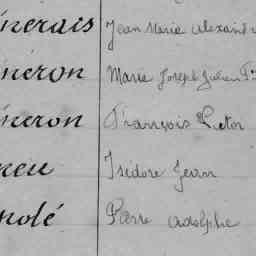 nerais Jean Marie Alexand
néron Marie Joseph Julien
neron François Victor
neu Isidore Jean
nolé Pierre Adolphe